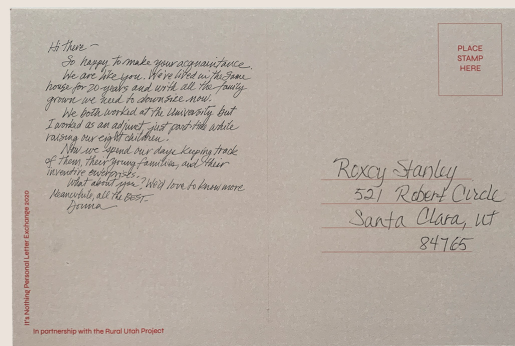 Hi there -
So happy to make your acquaintance.
We are like you. We've lived in the same
house for 20 years and with all the family
grown we need to downsize now.
We both worked at the University but
I worked as an adjunct just part-time while
raising our eight children.
Now we spend our days keeping track
of them, their young families, and their
inventive enterprises.
What about you? We'd love to know more
Meanwhile, all the BEST.
Donna
PLACE
STAMP
HERE
Roxcy Stanley
521 Robert Circle
Santa Clara, UT
84765
It's Nothing Personal Letter Exchange 2020
In partnership with the Rural Utah Project